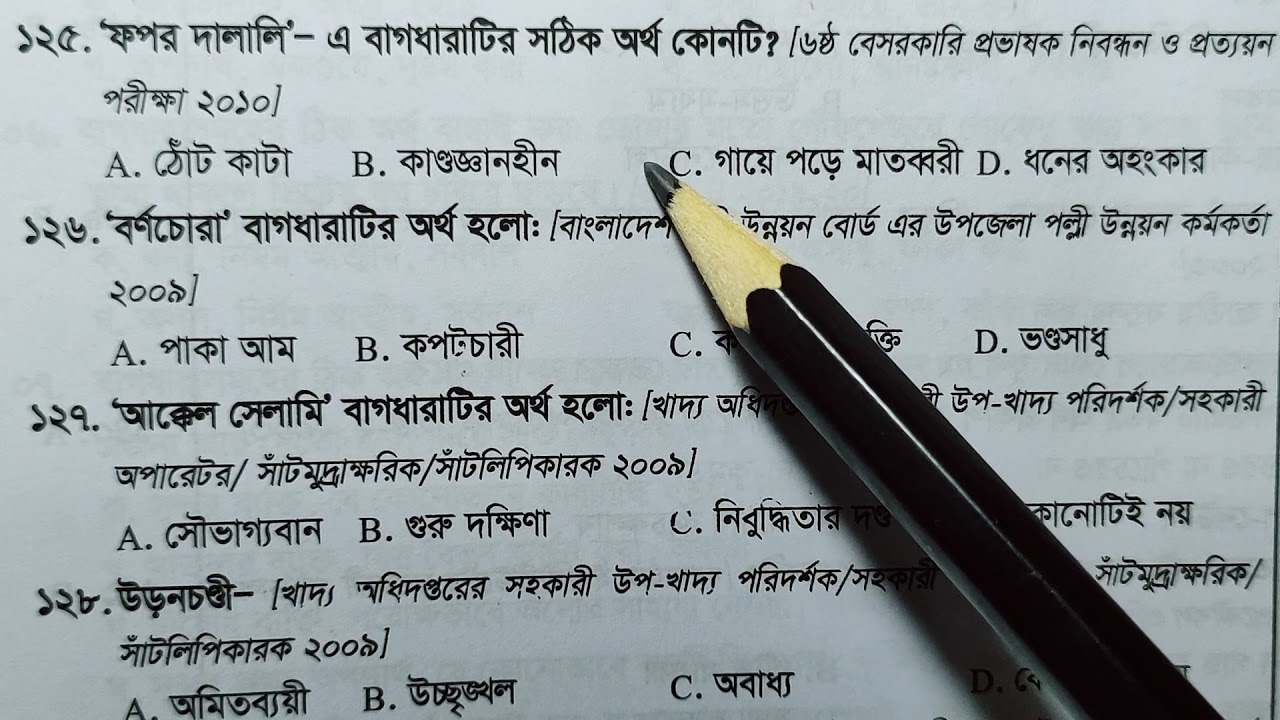 ১২৫. ‘ফপর দালালি’– এ বাগধারাটির সঠিক অর্থ কোনটি? [৬ষ্ঠ বেসরকারি প্রভাষক নিবন্ধন ও প্রত্যয়ন
পরীক্ষা ২০১০]
A. ঠোঁট কাটা B. কাণ্ডজ্ঞানহীন C. গায়ে পড়ে মাতব্বরী D. ধনের অহংকার
১২৬. ‘বর্ণচোরা’ বাগধারাটির অর্থ হলো: [বাংলাদেশ উন্নয়ন বোর্ড এর উপজেলা পল্লী উন্নয়ন কর্মকর্তা
২০০৯]
A. পাকা আম B. কপটচারী C. D. ভণ্ডসাধু
১২৭. ‘আক্কেল সেলামি’ বাগধারাটির অর্থ হলো: [খাদ্য উপ-খাদ্য পরিদর্শক/সহকারী
অপারেটর/ সাঁটমুদ্রাক্ষরিক/সাঁটলিপিকারক ২০০৯]
A. সৌভাগ্যবান B. গুরু দক্ষিণা C. নিবুদ্ধিতার দণ্ড কোনোটিই নয়
১২৮. উড়নচণ্ডী– [খাদ্য অধিদপ্তরের সহকারী উপ-খাদ্য পরিদর্শক/সহকারী সাঁটমুদ্রাক্ষরিক/
সাঁটলিপিকারক ২০০৯]
A. অমিতব্যয়ী B. উচ্ছৃঙ্খল C. অবাধ্য D.